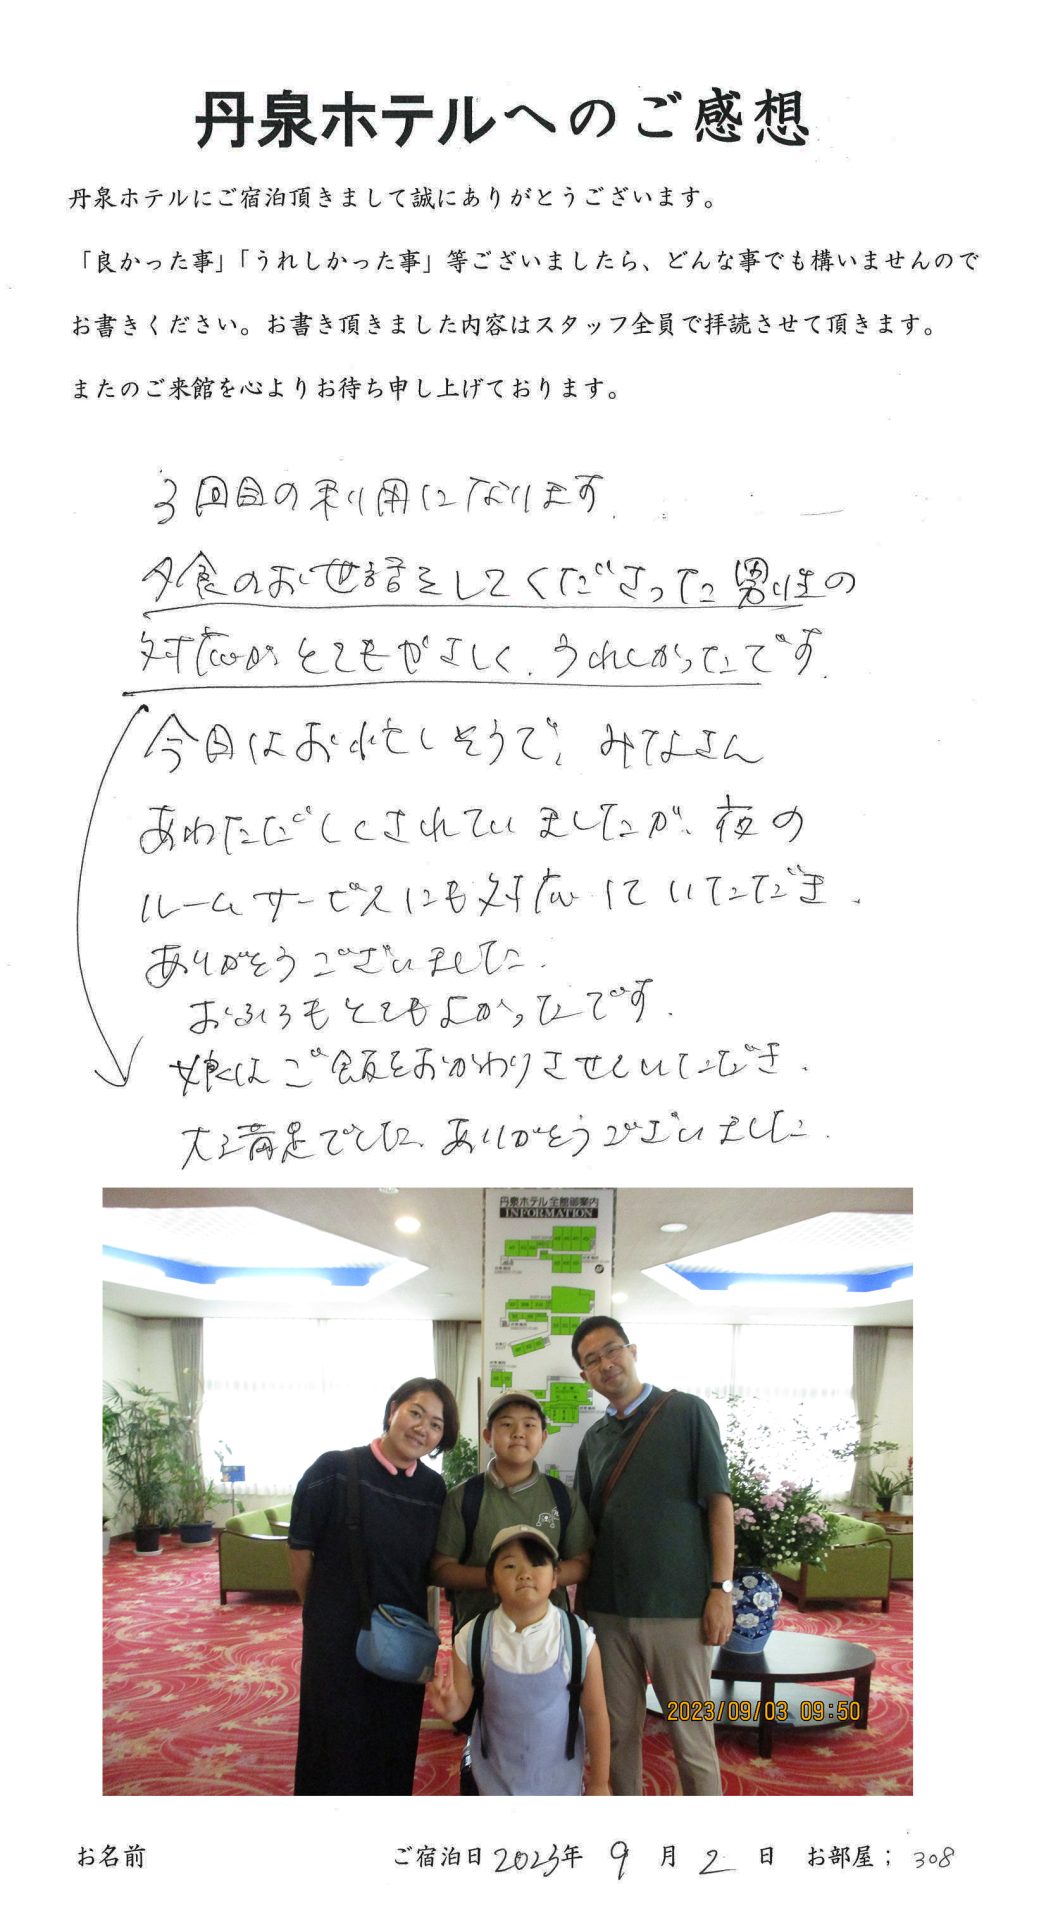 丹泉ホテルへのご感想
丹泉ホテルにご宿泊頂きまして誠にありがとうございます。
「良かった事」「うれしかった事」等ございましたら、どんな事でも構いませんので
お書きください。お書き頂きました内容はスタッフ全員で拝読させて頂きます。
またのご来館を心よりお待ち申し上げております。
3回目の利用になります.
夕食のお世話をしてくださった男性の
対応がとてもやさしく、うれしかったです.
今日はお忙しそうで、みなさん
あわただしくされていましたが、夜の
ルームサービスにも対応していただき、
ありがとうございました.
おふろもとてもよかったです.
娘はご飯をおかわりさせていただき、
大満足でした、ありがとうございました.
丹泉ホテル全館御案内
INFORMATION
2023/09/03 09:50
お名前 ご宿泊日 2023年 9 月 2 日 お部屋; 308